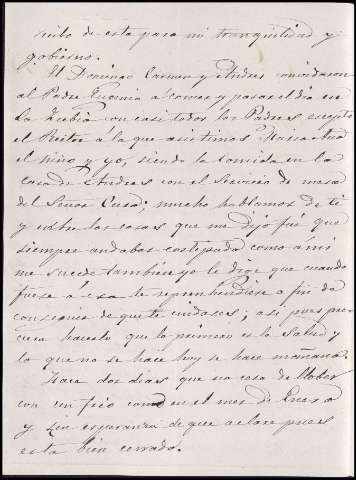 recibo de esta para mi tranquilidad y
gobierno.
El Domingo Carmen y Andres convidaron
al Padre Eugenio a comer y pasar el dia en
la Lrebia con casi todos los Padres excepto
el Rector á la que asistimos
el niño y yo, siendo la comida en la
casa de Andres con el Servicio de mesa
del Señor Cura; mucho hablamos de ti
y entre las cosas que me dijo fué que
siempre andabas costipada como a mi
me sucede tambien yo le dige que cuando
fuese á esa te reprendiese a fin de
conseguir de que te cuidases; asi pues pro
cura hacerlo que lo primero es la salud y
lo que no se hace hoy se hace mañana.
Hace dos dias que no cesa de llober
con un frio como en el mes de Enero
y sin esperanza de que aclare pues
esta bien cerrado.